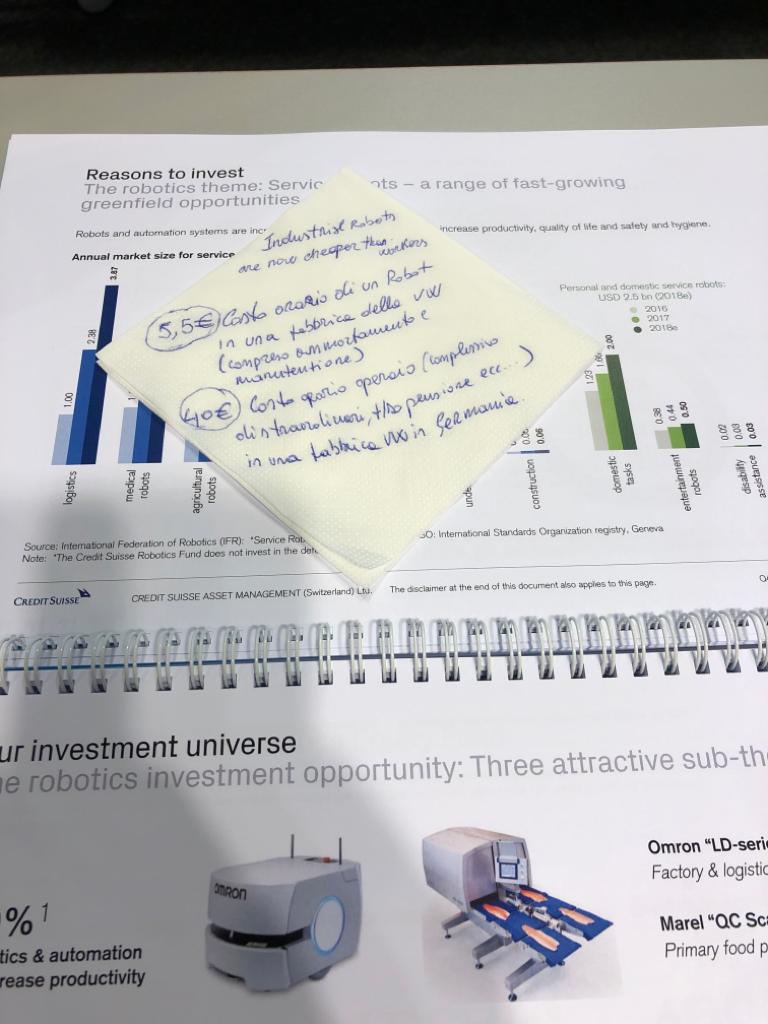 Reasons to invest
The robotics theme: Servic ots – a range of fast-growing
greenfield opportunities
Robots and automation systems are inc increase productivity, quality of life and safety and hygiene.
Annual market size for service
Industrial Robots
are now cheaper than workers
5,5€ Costo orario di un Robot
in una fabbrica della VW
(compreso ammortamento e
manutentione)
40€ Costo orario operaio (complessivo
di straordinari, pensione ecc...)
in una fabbrica VW in Germania.
Personal and domestic service robots:
USD 2.5 bn (2018e)
2016
2017
2018e
1.00
2.38
3.87
1
0.06
0.06
1.23
1.66
2.00
0.38
0.44
0.50
0.02
0.03
0.03
logistics
medical
robots
agricultural
robots
unde
construction
domestic
tasks
entertainment
robots
disability
assistance
Source: International Federation of Robotics (IFR): *Service Rob SO: International Standards Organization registry, Geneva
Note: *The Credit Suisse Robotics Fund does not invest in the defe
CREDIT SUISSE
CREDIT SUISSE ASSET MANAGEMENT (Switzerland) Ltd. The disclaimer at the end of this document also applies to this page.
ur investment universe
e robotics investment opportunity: Three attractive sub-th
OMRON
% 1
tics & automation
rease productivity
Omron "LD-serie
Factory & logistic
Marel "QC Sca
Primary food p